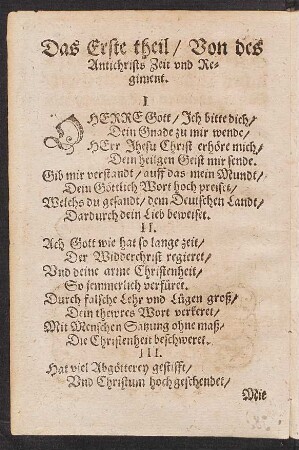 Das Erste theil / Von des
Antichrists Zeit vnd Re-
giment.
I
O HERRE Gott / Ich bitte dich /
Dein Gnade zu mir wende /
HErr Jhesu Christ erhöre mich /
Dem heilgen Geist mir sende.
Gib mir verstandt / auff das mein Mundt /
Dein Göttlich Wort hoch preiset /
Welchs du gesandt / dem Deutschen Landt /
Dardurch dein Lieb beweiset.
II.
Ach Gott wie hat so lange zeit /
Der Widderchrist regieret /
Vnd deine arme Christenheit /
So jemmerlich verfüret.
Durch falsche Lehr vnd Lügen groß /
Dein thewres Wort verkeret /
Mit Menschen Satzung ohne maß /
Die Christenheit beschweret.
III.
Hat viel Abgötterey gestifft /
Vnd Christum hoch geschendet /
Mit